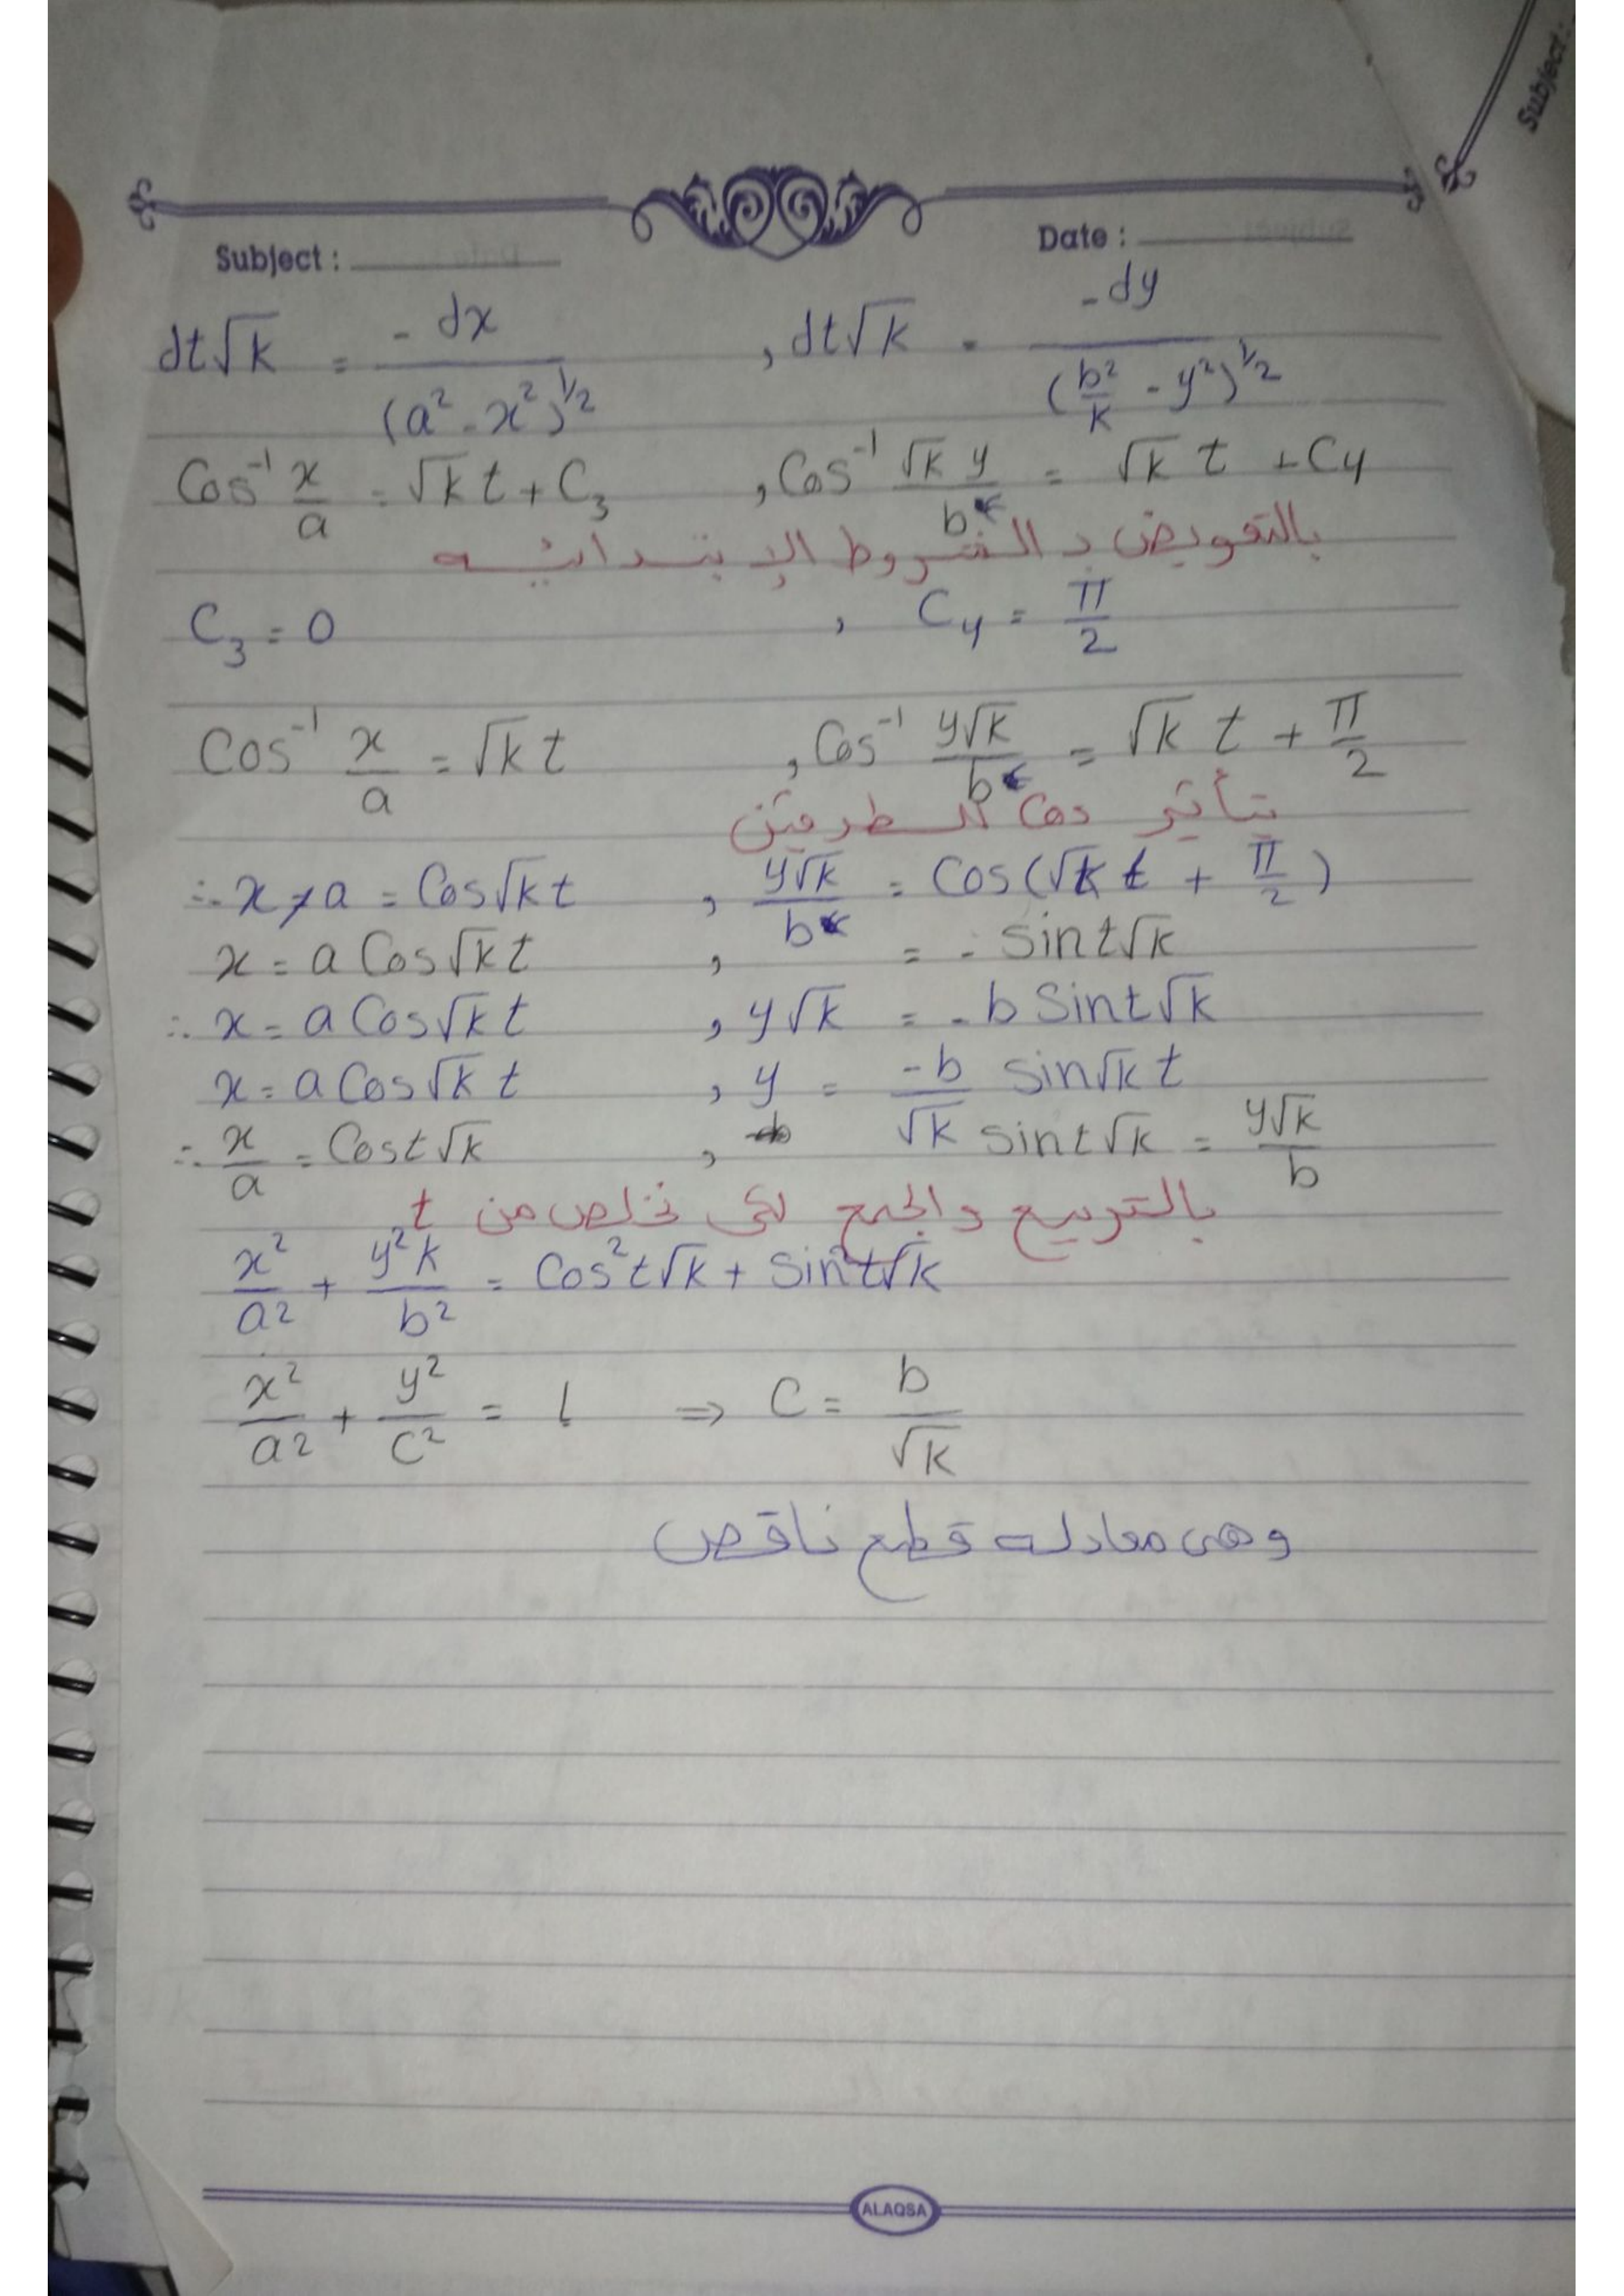 Subject :
Subject : Date :
dt√k = - dx / (a² - x²)^½ , dt√k = - dy / (b²/k - y²)^½
Cos⁻¹ x/a = √k t + C₃ , Cos⁻¹ √k y / b = √k t + C₄
بالتعويض بالشروط الإبتدائيه
C₃ = 0 , C₄ = π/2
Cos⁻¹ x/a = √k t , Cos⁻¹ y√k / b = √k t + π/2
بتأثير cos للطرفين
∴ x/a = Cos√k t , y√k / b = Cos(√k t + π/2)
x = a Cos√k t , = - sin t√k
∴ x = a Cos√k t , y√k = - b Sin t√k
x = a Cos√k t , y = -b/√k sin√k t
∴ x/a = Cos t√k , sin t√k = y√k / b
بالتربيع والجمع لكى نخلص من t
x²/a² + y²k/b² = Cos² t√k + Sin² t√k
x²/a² + y²/c² = 1 ⇒ C = b/√k
وهى معادله قطع ناقص
ALAQSA